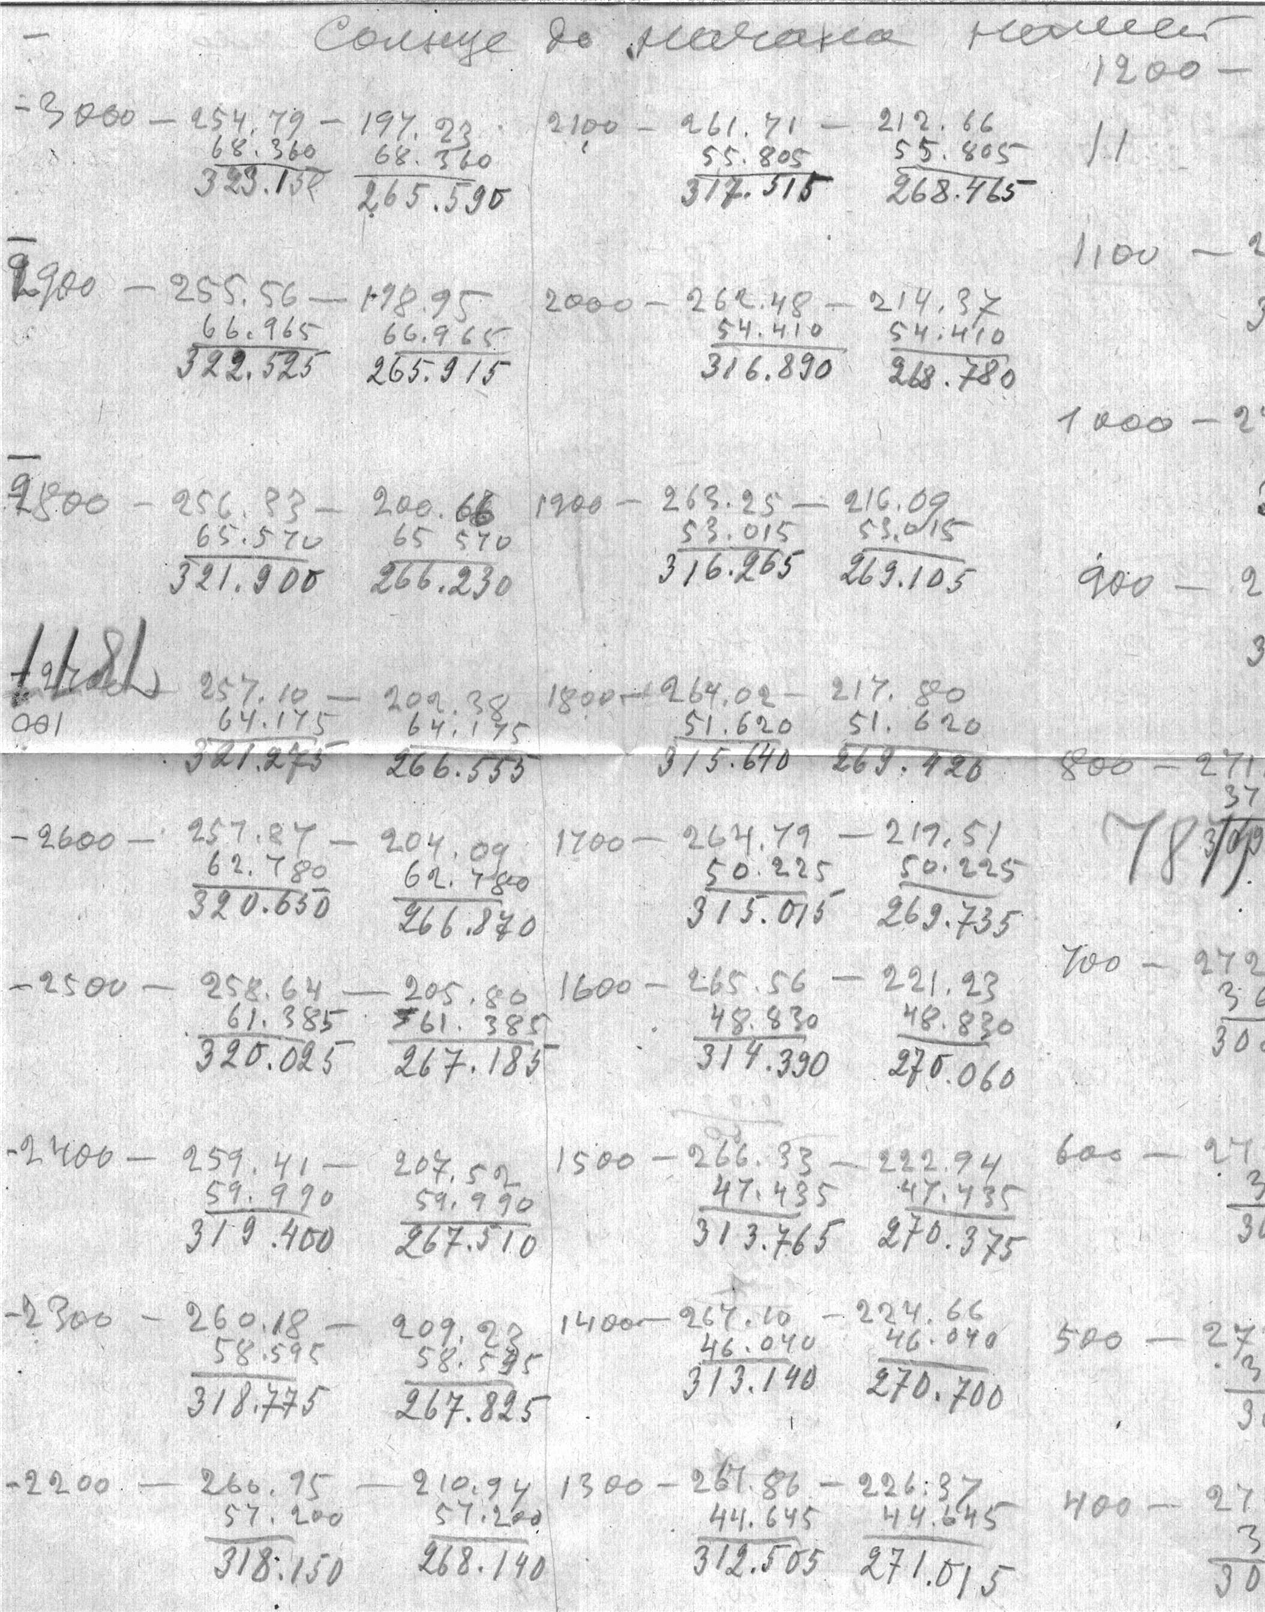 Солнце до начала нашей
1200 —
-3000 — 254.79 — 197.23 2100 — 261.71 — 212.66
68.360 68.360 55.805 55.805 11
323.150 265.590 317.515 268.465
1100 — 2
2900 — 255.56 — 198.95 2000 — 262.48 — 214.37
66.965 66.965 54.410 54.410 3
322.525 265.915 316.890 268.780
1000 — 27
2800 — 256.33 — 200.66 1900 — 263.25 — 216.09
65.570 65 570 53.015 53.015
321.900 266.230 316.265 269.105
900 — 2
3
257.10 — 202.38 1800 — 264.02 — 217.80
001 64.175 64.175 51.620 51.620
321.275 266.555 315.640 269.420
800 — 271.
37
-2600 — 257.87 — 204.09 1700 — 264.79 — 219.51 78
62.780 62.780 50.225 50.225
320.650 266.870 315.015 269.735
700 — 272
-2500 — 258.64 — 205.80 1600 — 265.56 — 221.23 36
61.385 61.385 48.830 48.830
320.025 267.185 314.390 270.060 30
-2400 — 259.41 — 207.52 1500 — 266.33 — 222.94 600 — 27
59.990 59.990 47.435 47.435 3
319.400 267.510 313.765 270.375 30
-2300 — 260.18 — 209.23 1400 — 267.10 — 224.66 500 — 27
58.595 58.595 46.040 46.040 3
318.775 267.825 313.140 270.700 30
-2200 — 260.95 — 210.94 1300 — 267.86 — 226.37 400 — 27
57.200 57.200 44.645 44.645 3
318.150 268.140 312.505 271.015 30